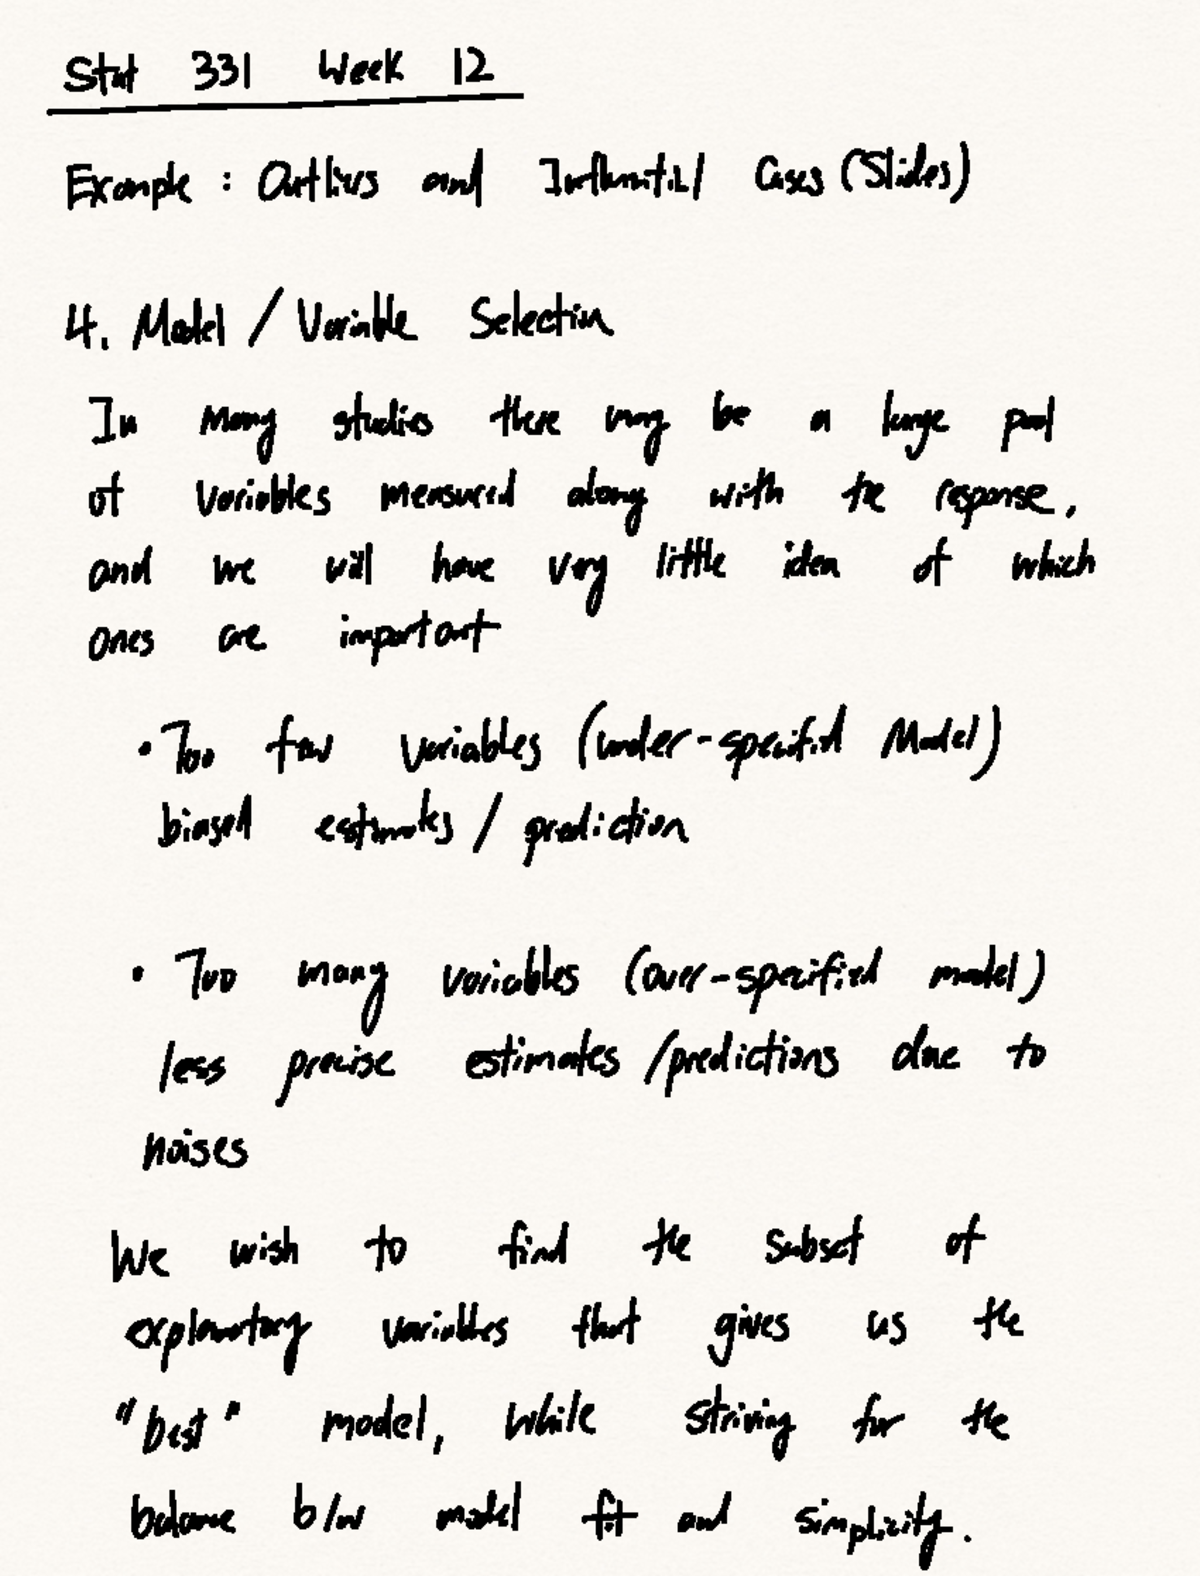 Stat 331 Week 12
Example: Outliers and Influential Cases (Slides)
4. Model / Variable Selection
In many studies there may be a large pool
of variables measured along with the response,
and we will have very little idea of which
ones are important
• Too few variables (under-specified Model)
biased estimates / prediction
• Too many variables (over-specified model)
less precise estimates / predictions due to
noises
We wish to find the subset of
explanatory variables that gives us the
"best" model, while striving for the
balance b/w model fit and simplicity.